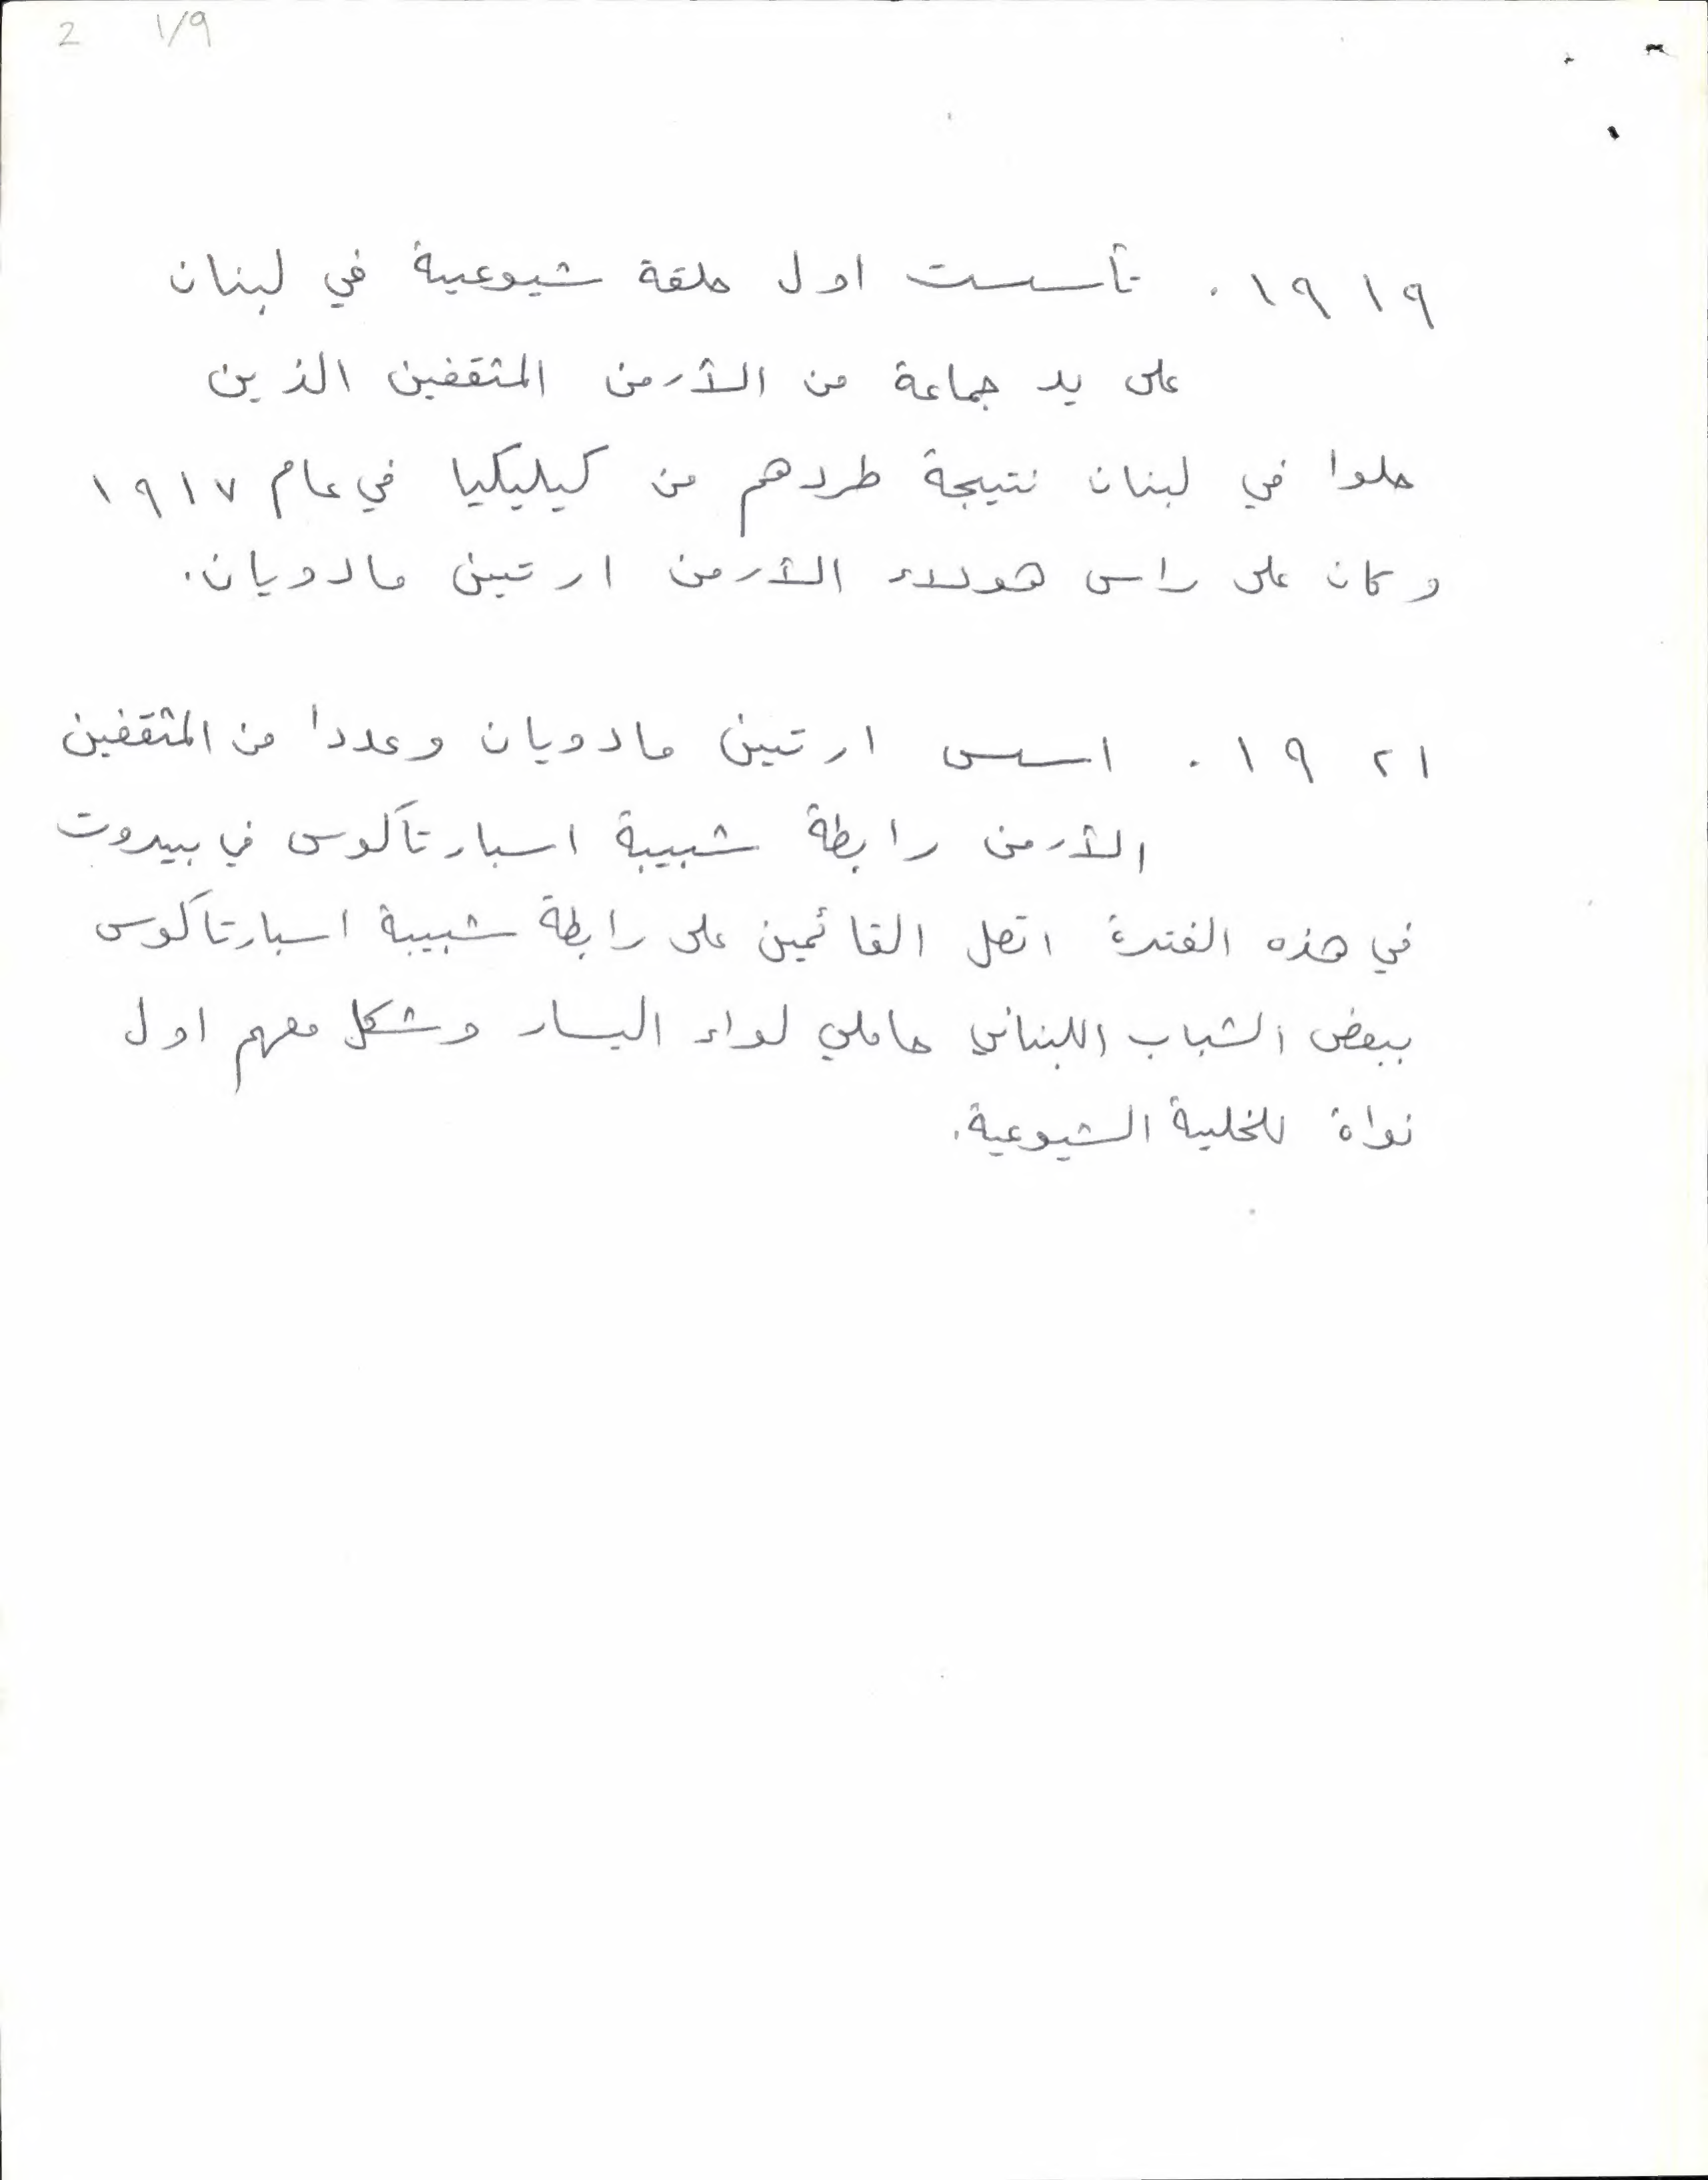 2 1/9
١٩١٩. تأسست اول حلقة شيوعية في لبنان
على يد جماعة من الأرمن المثقفين الذين
حلوا في لبنان نتيجة طردهم من كيليكيا في عام ١٩١٧
وكان على راس هولاء الأرمن ارتين مادويان.
١٩٢١. اسس ارتين مادويان وعددا من المثقفين
الأرمن رابطة شبيبة اسبارتاكوس في بيروت
في هذه الفترة اتصل القائمين على رابطة شبيبة اسبارتاكوس
ببعض الشباب اللبناني حاملي لواء اليسار وشكل معهم اول
نواة للخلية الشيوعية.